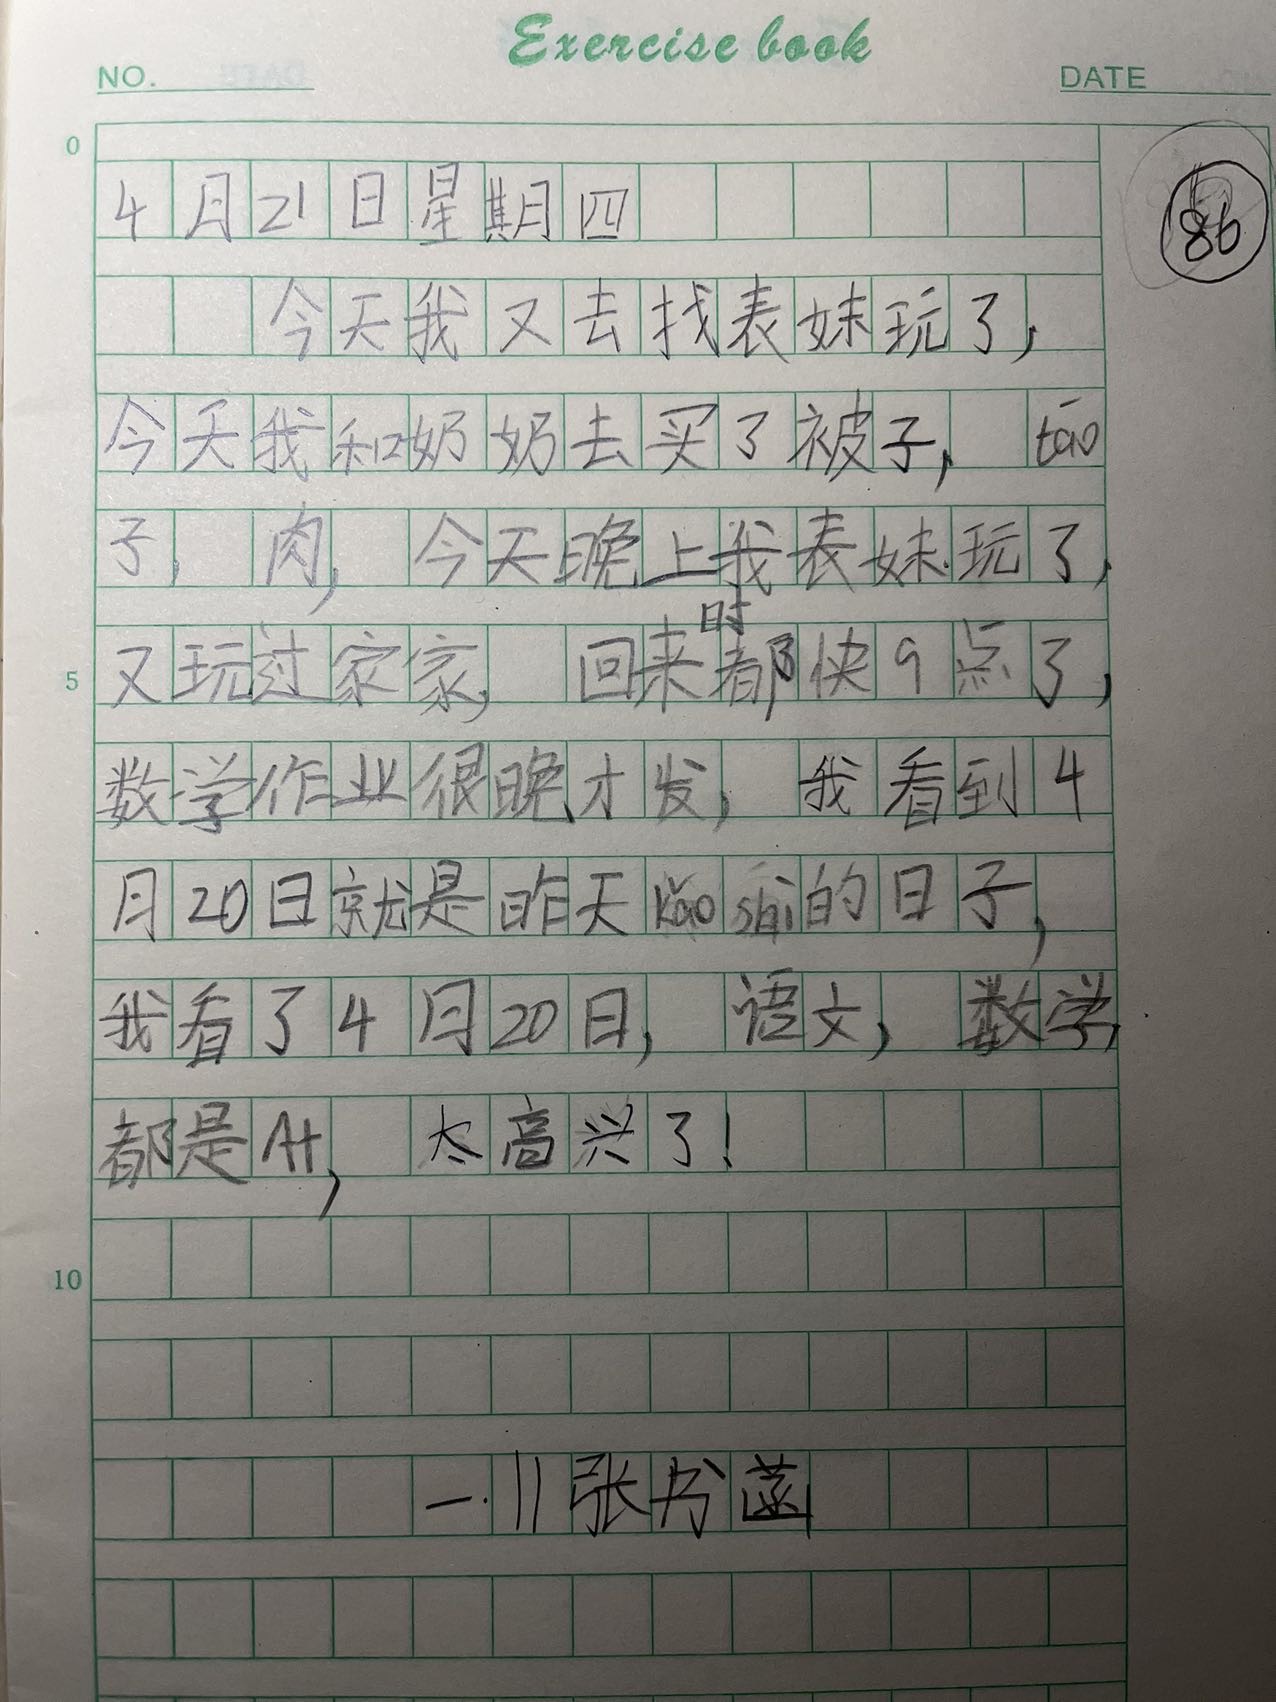 Exercise book
NO.
DATE
0
86
4月21日星期四
今天我又去找表妹玩了,
今天我和奶奶去买了被子, tāo
子, 肉, 今天晚上我表妹玩了,
时
5
又玩过家家, 回来都快9点了,
数学作业很晚才发, 我看到4
月20日就是昨天kǎo shì的日子,
我看了4月20日, 语文, 数学,
都是A+, 太高兴了!
10
一·11张书菡